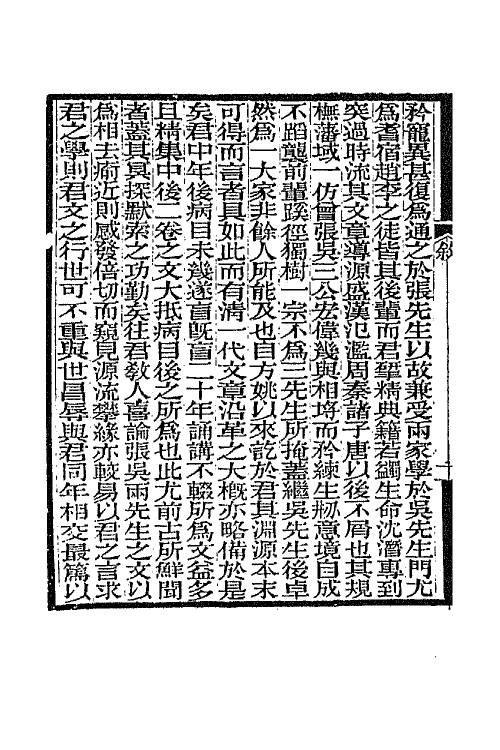 矜寵異甚復爲通之於張先生以故兼受兩家學於吳先生門尤
爲耆宿趙李之徒皆其後輩而君揅精典籍若蠲生命沈潛專到
突過時流其文章導源盛漢氾濫周秦諸子唐以後不屑也其規
橅藩域一仿曾張吳三公宏偉幾與相埒而矜練生剏意境自成
不蹈襲前輩蹊徑獨樹一宗不爲三先生所掩蓋繼吳先生後卓
然爲一大家非餘人所能及也自方姚以來訖於君其淵源本末
可得而言者具如此而有清一代文章沿革之大槪亦略備於是
矣君中年後病目未幾遂盲旣盲二十年誦講不輟所爲文益多
且精集中後二卷之文大抵病目後之所爲也此尤前古所鮮聞
者蓋其冥探默索之功勤矣往君敎人喜論張吳兩先生之文以
爲相去癒近則感發倍切而窺見源流攀緣亦較易以君之言求
君之學則君文之行世可不重與世昌辱與君同年相交最篤以
敘
一